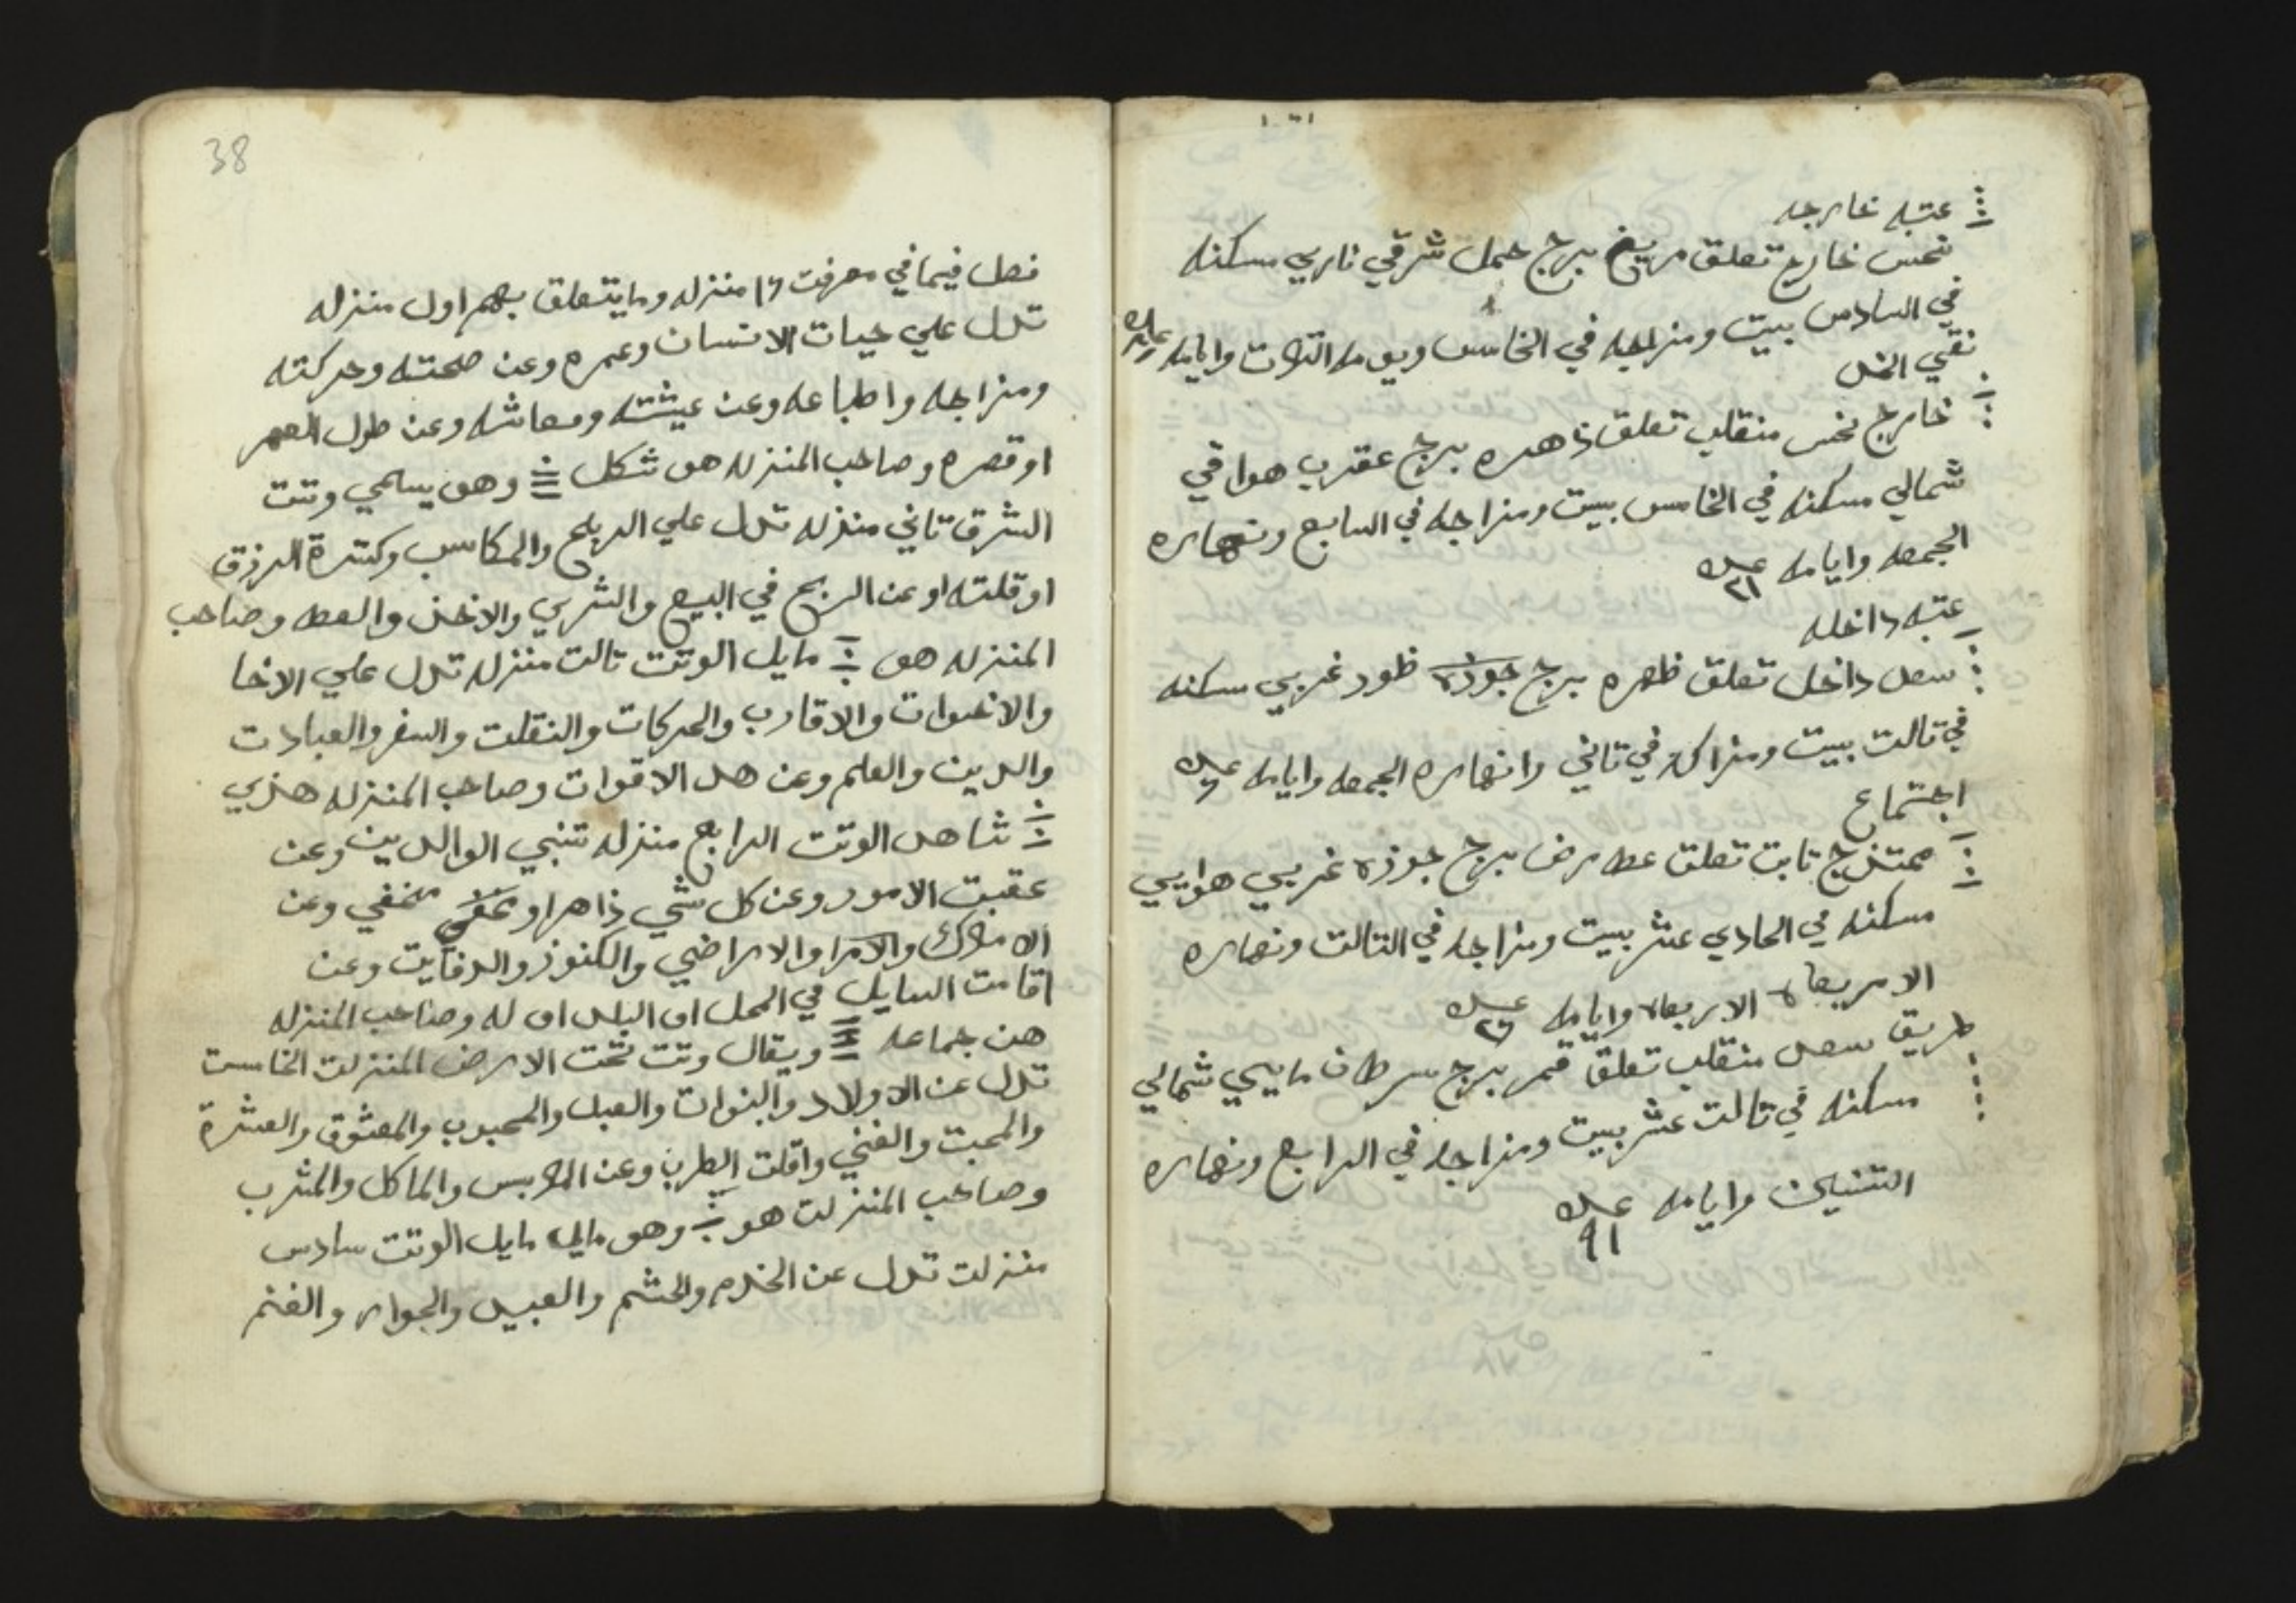 عتبه خارجه
نحس خارج تعلق مريخ برج حمل شرقي ناري مسكنه
في السادس بيت ومزاجه في الخامس ويومه التلات وايامه
نقي الخد
خارج نحس منقلب تعلق ذهره برج عقرب هوا في
شمالي مسكنه في الخامس بيت ومزاجه في السابع ونهاره
الجمعه وايامه عدد ٢١
عتبه داخله
سعد داخل تعلق ظهره برج ظور غربي سكنه
في تالت بيت ومزا في تاني وانهاره الجمعه وايامه عدد
اجتماع
ممتزج تابت تعلق عطارض برج جوزه غربي هوايي
مسكنه في الحادي عشر بيت ومزاجه في التالت ونهاره
الاربعاه الاربعاه وايامه عدد ٢٦
طريق سعد منقلب تعلق قمر برج سرطان مايي شمالي
مسكنه في تالت عشر بيت ومزاجه في الرابع ونهاره
التنين وايامه عدد ٩١
38
فصل فيما في معرفت ١٦ منزله وما يتعلق بهم اول منزله
تدل علي حيات الانسان وعمره وعن صحته وحركته
ومزاجه واطباعه وعن عيشته ومعاشه وعن طول العمر
او قصره وصاحب المنزله هو شكل وهو يسمي وتت
الشرق تاني منزله تدل علي الربح والمكاسب وكترة الرزق
او قلته او عن الربح في البيع والشري والاخذ والعطه وصاحب
المنزله هو مايل الوتت تالت منزله تدل علي الاخا
والاخوات والاقارب والحركات والنقلت والسفر والعبادت
والدين والعلم وعن هد الاقوات وصاحب المنزله هذي
شاهد الوتت الرابع منزله تنبي الوالدين وعن
عقبت الامور وعن كل شي ذاهر او مخفي وعن
الاملاك والامرا والاراضي والكنوز والدفايت وعن
اقامت السايل في المحل او البلد او له وصاحب المنزله
هن جماعه ويقال وتت تحت الارض المنزلت الخامست
تدل عن الاولاد والبنوات والعبد والمحبوب والمعشوق والعشرة
والمحبت والغني واقلت الطرب وعن الملابس والماكل والمشرب
وصاحب المنزلت هو وهو مايل الوتت سادس
منزلت تدل عن الخدم والحشم والعبيد والجوار والغنم